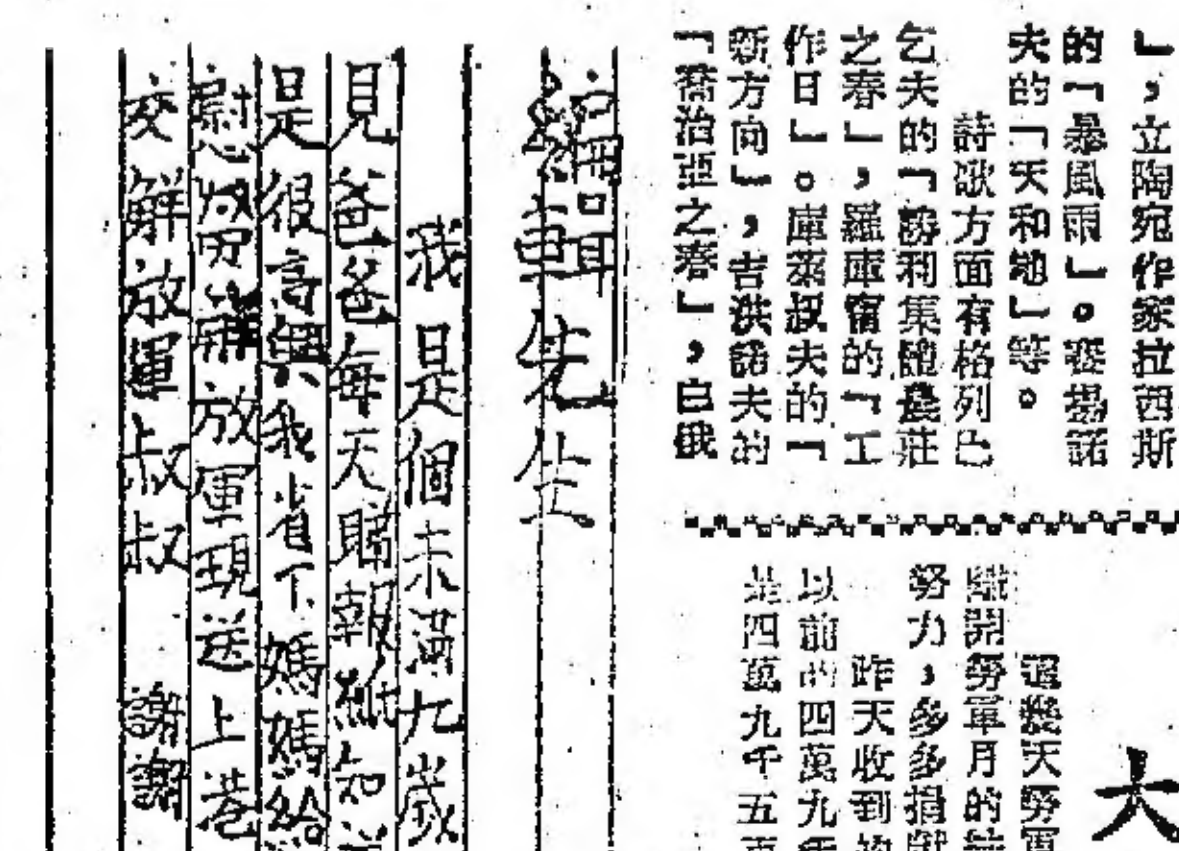 」，立陶宛作家拉西斯
的「暴風雨」。塞揚諾
夫的「天和地」等。
詩歌方面有格列巴
乞夫的「勝利集體農莊
之春」，羅庫窗的「工
作日」。庫萊叔夫的「
新方向」，吉洪諾夫的
「喬治亞之春」，白俄
大
這幾天勞軍
開勞軍月的
努力，多多捐獻
昨天收到的
以前的四萬九千
是四萬九千五百
編輯先生
我是個未滿九歲
見爸爸每天購報紙知
是很高興我省下媽媽給
慰勞解放軍現送上港
交解放軍叔叔 謝謝